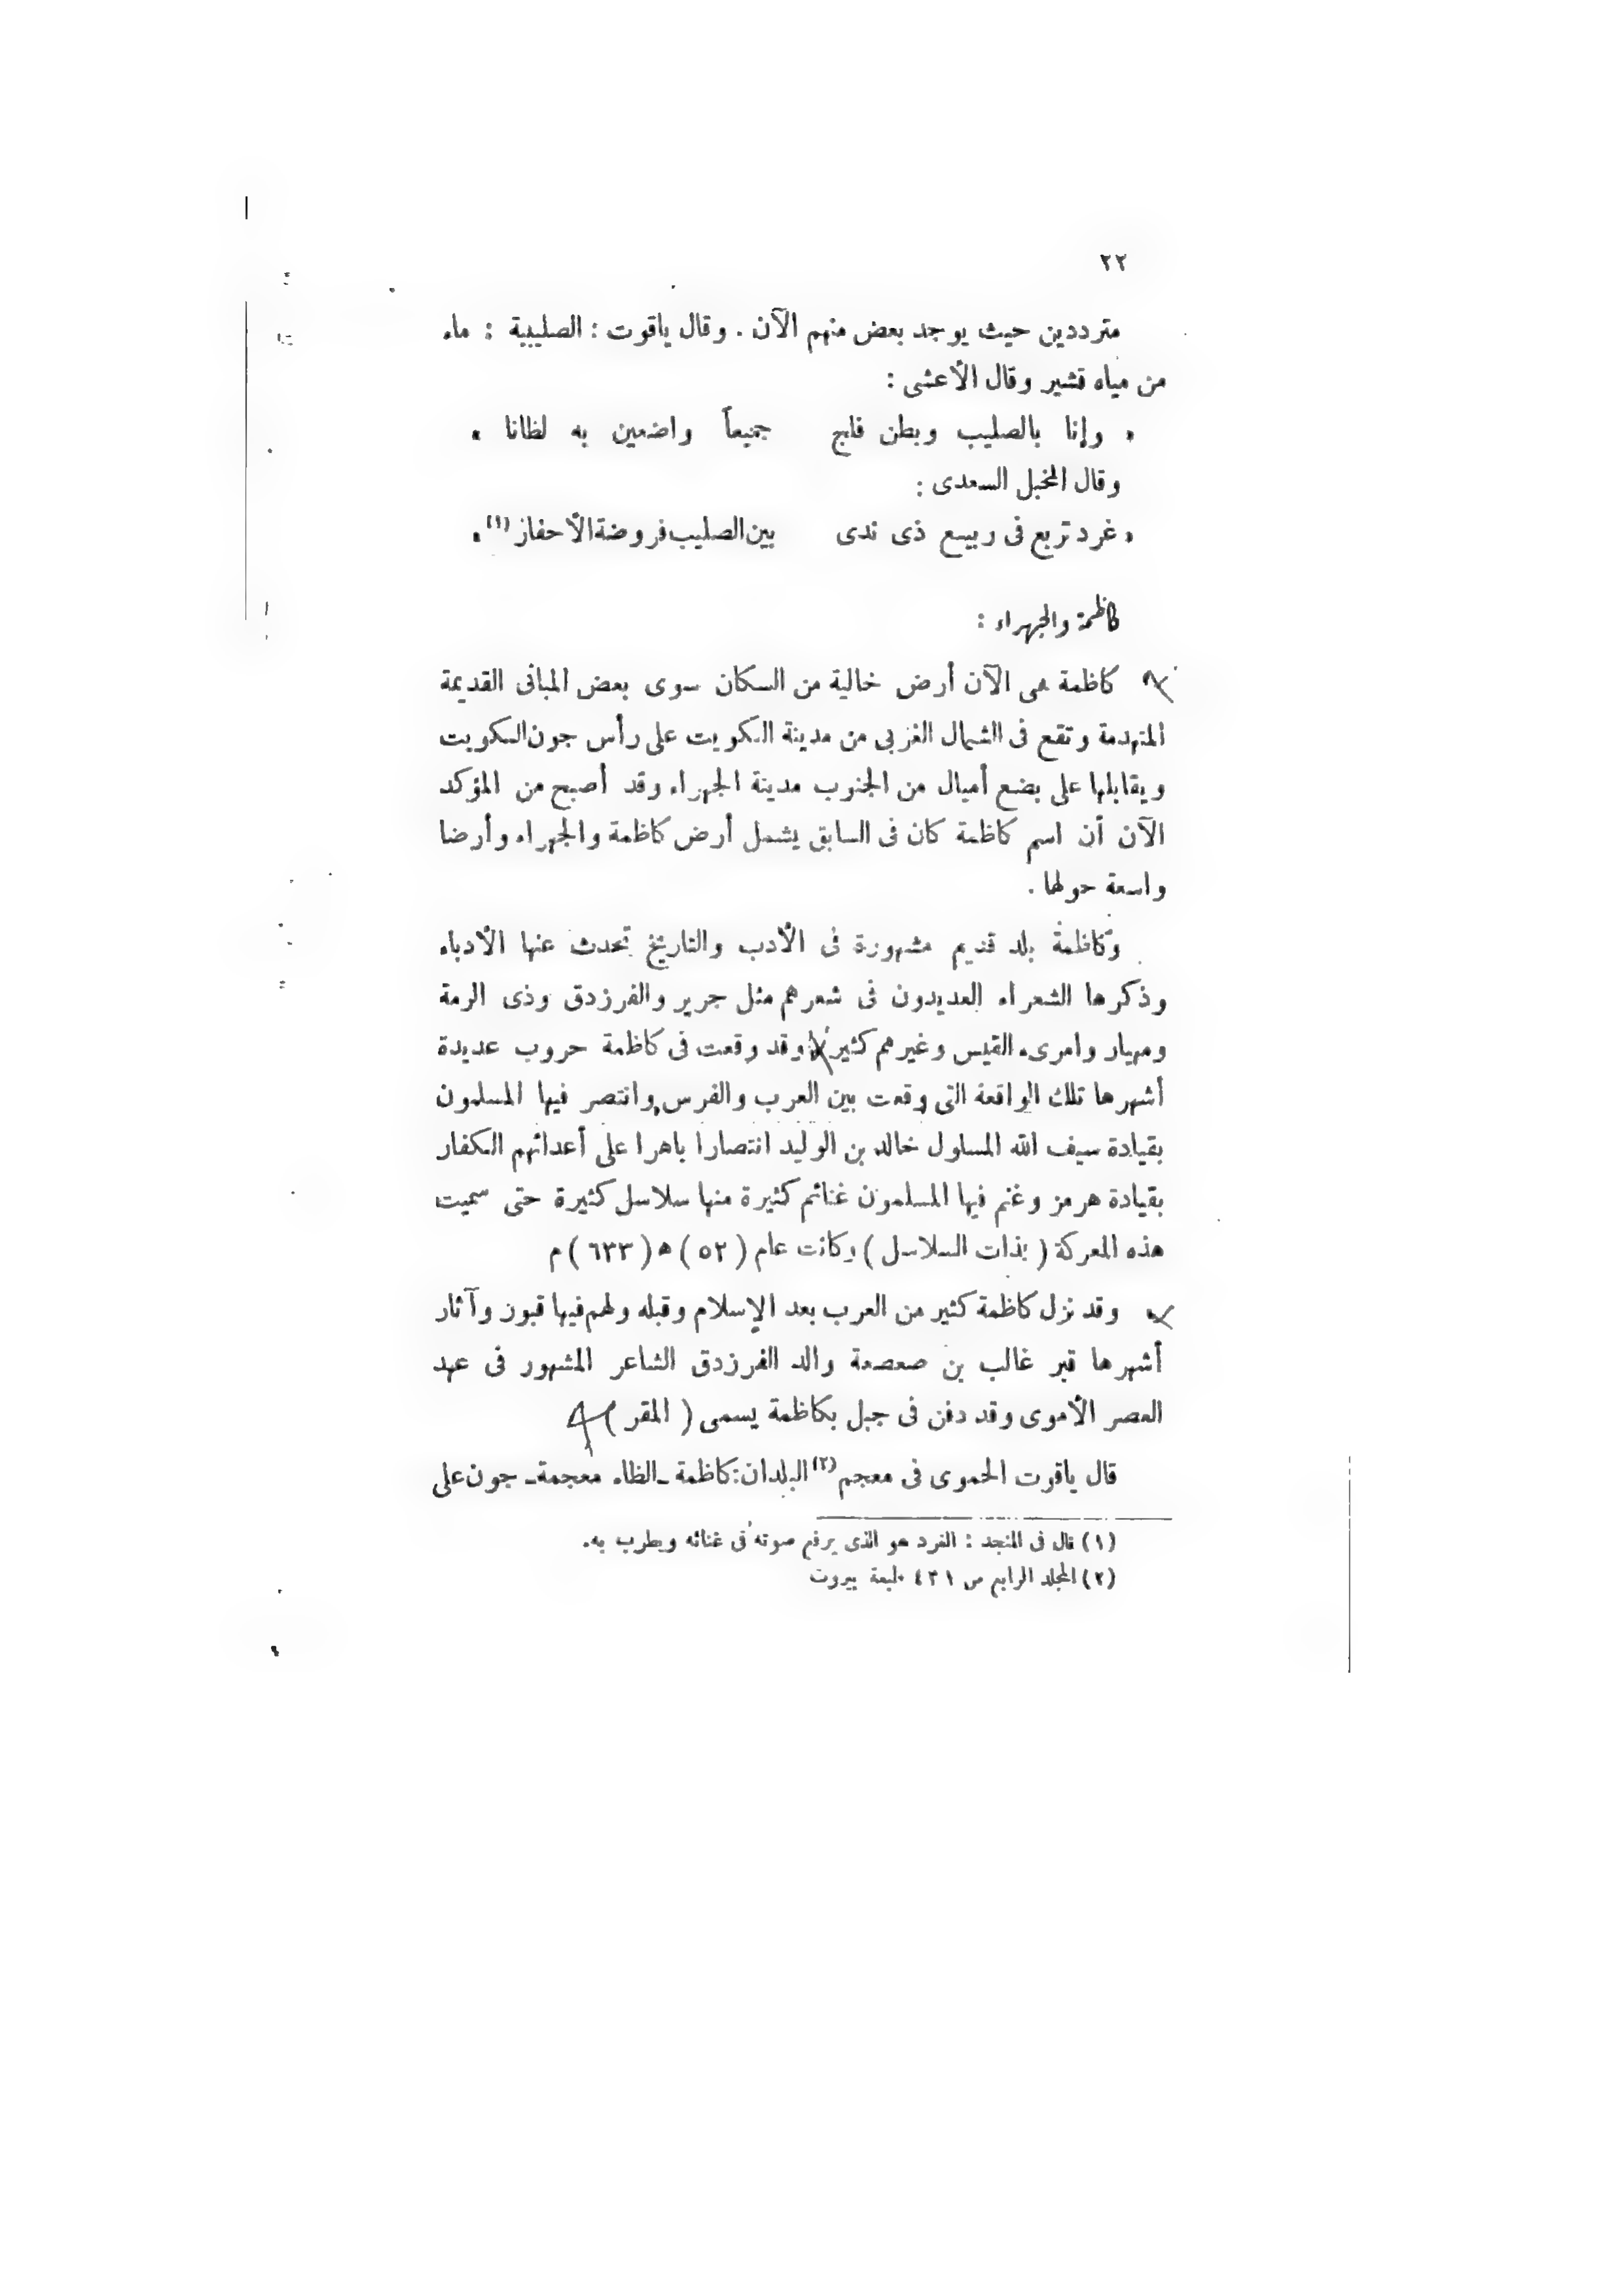 ٢٢
مترددين حيث يوجد بعض منهم الآن . وقال ياقوت : الصليبية : ماء
من مياه قشير وقال الأعشى :
« وإنا بالصليب وبطن فلج جميعاً واضعين به لظانا »
وقال المخبل السعدى :
« غرد تربع فى ربيع ذى ندى بين الصليب فروضة الأحفاز (١) »
كاظمة والجهراء :
كاظمة هى الآن أرض خالية من السكان سوى بعض المبانى القديمة
المتهدمة وتقع فى الشمال الغربى من مدينة الكويت على رأس جون الكويت
ويقابلها على بضع أميال من الجنوب مدينة الجهراء وقد أصبح من المؤكد
الآن أن اسم كاظمة كان فى السابق يشمل أرض كاظمة والجهراء وأرضا
واسعة حولها .
وكاظمة بلد قديم مشهورة فى الأدب والتاريخ تحدث عنها الأدباء
وذكرها الشعراء العديدون فى شعرهم مثل جرير والفرزدق وذى الرمة
ومهيار وامرىء القيس وغيرهم كثير وقد وقعت فى كاظمة حروب عديدة
أشهرها تلك الواقعة التى وقعت بين العرب والفرس وانتصر فيها المسلمون
بقيادة سيف الله المسلول خالد بن الوليد انتصارا باهرا على أعدائهم الكفار
بقيادة هرمز وغنم فيها المسلمون غنائم كثيرة منها سلاسل كثيرة حتى سميت
هذه المعركة ( بذات السلاسل ) وكانت عام ( ٥٢ ) ه ( ٦٣٣ ) م
وقد نزل كاظمة كثير من العرب بعد الإسلام وقبله ولهم فيها قبور وآثار
أشهرها قبر غالب بن صعصعة والد الفرزدق الشاعر المشهور فى عهد
العصر الأموى وقد دفن فى جبل بكاظمة يسمى ( المقر )
قال ياقوت الحموى فى معجم (٢) البلدان : كاظمة ـ الظاء معجمة ـ جون على
(١) قال فى المنجد : الغرد هو الذى يرفع صوته فى غنائه ويطرب به .
(٢) المجلد الرابع ص ٤٣١ طبعة بيروت